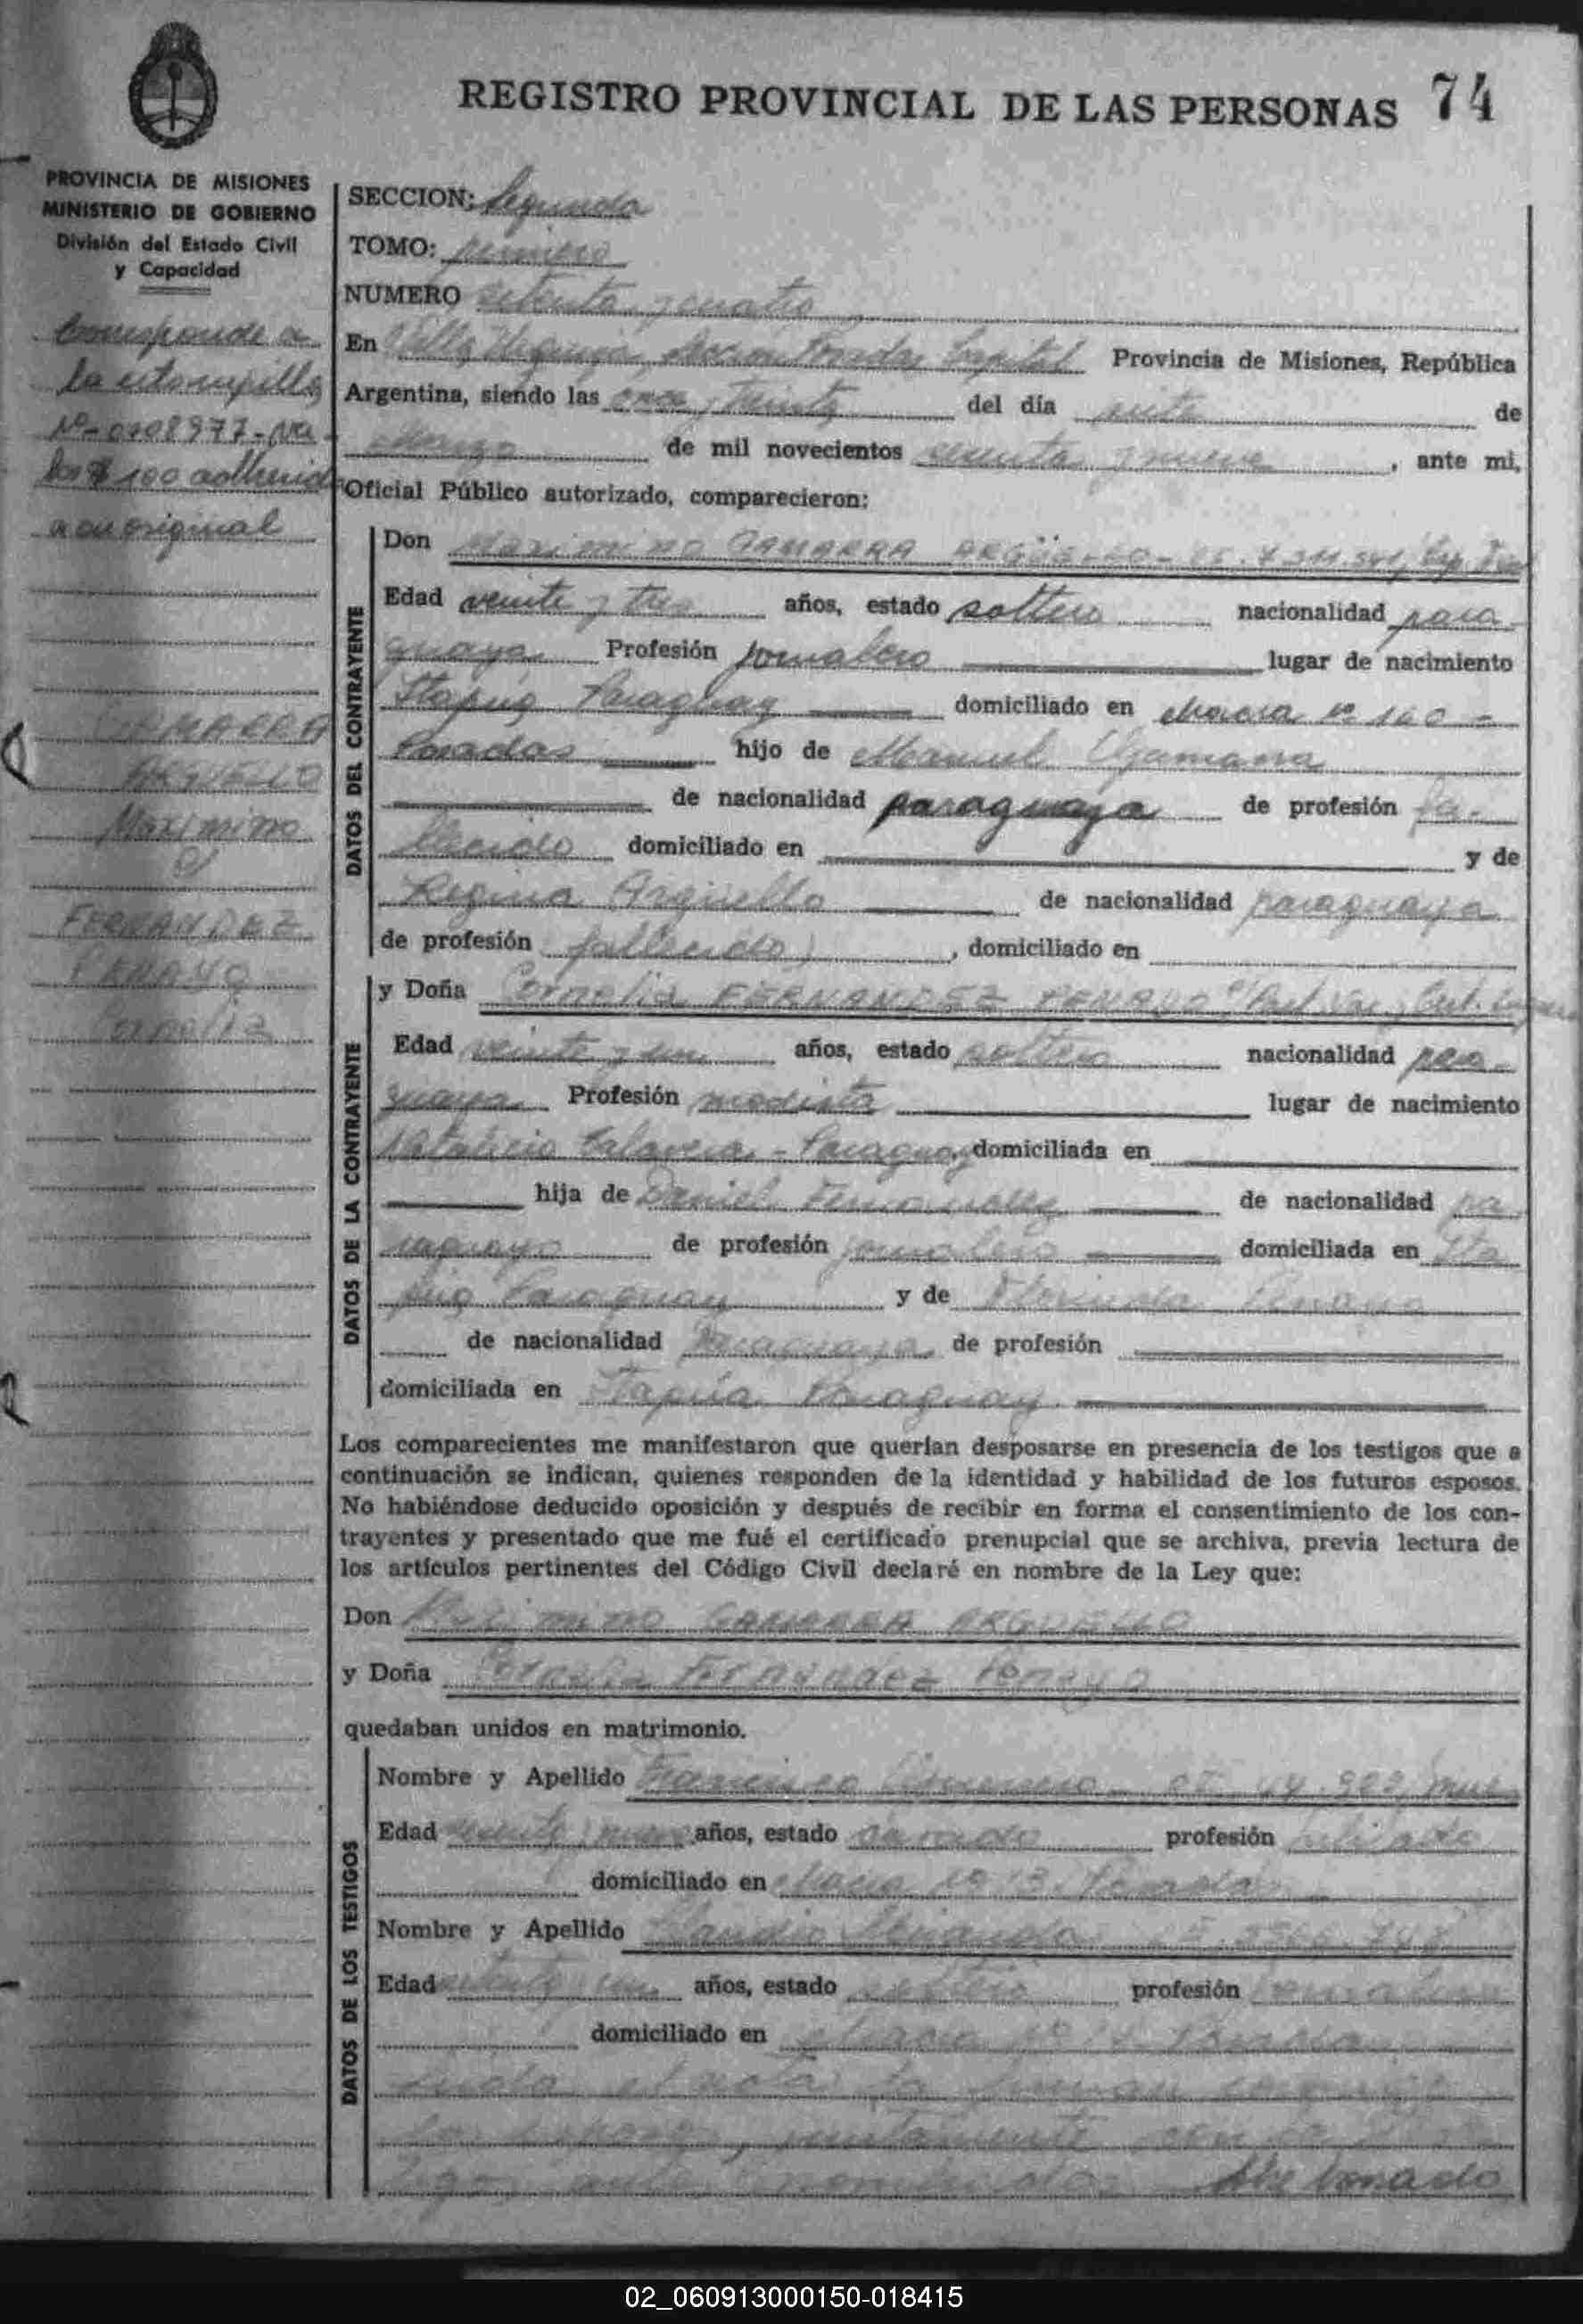 REGISTRO PROVINCIAL DE LAS PERSONAS 74
PROVINCIA DE MISIONES
MINISTERIO DE GOBIERNO
División del Estado Civil
y Capacidad
Corresponde a
la estampilla
Nº-0708977-
$ 100
a su original
GAMARRA
ARGUELLO
Maximino
c/
FERNANDEZ
PENAYO
Cornelia
SECCION: Segunda
TOMO: primero
NUMERO setenta y cuatro
En Villa Urquiza, Posadas Capital Provincia de Misiones, República
Argentina, siendo las once y treinta del día siete de
marzo de mil novecientos sesenta y nueve, ante mi,
Oficial Público autorizado, comparecieron:
DATOS DEL CONTRAYENTE
Don Maximino GAMARRA ARGÜELLO
Edad veinte y tres años, estado soltero nacionalidad para-
guaya Profesión jornalero lugar de nacimiento
Itapúa Paraguay domiciliado en chacra Nº 160 -
Posadas hijo de Manuel Gamarra
de nacionalidad paraguaya de profesión fa-
llecido domiciliado en y de
Regina Argüello de nacionalidad paraguaya
de profesión fallecida, domiciliado en
DATOS DE LA CONTRAYENTE
y Doña Cornelia FERNANDEZ PENAYO
Edad veinte y un años, estado soltera nacionalidad para-
guaya Profesión modista lugar de nacimiento
Natalicio Talavera - Paraguay domiciliada en
hija de Daniel Fernandez de nacionalidad pa
raguaya de profesión jornalero domiciliada en Ita
púa Paraguay y de Florinda Penayo
de nacionalidad Paraguaya de profesión
domiciliada en Itapúa Paraguay
Los comparecientes me manifestaron que querían desposarse en presencia de los testigos que a
continuación se indican, quienes responden de la identidad y habilidad de los futuros esposos.
No habiéndose deducido oposición y después de recibir en forma el consentimiento de los con-
trayentes y presentado que me fué el certificado prenupcial que se archiva, previa lectura de
los artículos pertinentes del Código Civil declaré en nombre de la Ley que:
Don Maximino GAMARRA ARGUELLO
y Doña Cornelia Fernández Penayo
quedaban unidos en matrimonio.
DATOS DE LOS TESTIGOS
Nombre y Apellido Francisco
Edad años, estado casado profesión jubilado
domiciliado en chacra Posadas
Nombre y Apellido Claudio
Edad años, estado soltero profesión jornalero
domiciliado en chacra Nº Posadas
Leida el acta la firman conmigo
los esposos, juntamente con los
tigos ante nombrados
02_060913000150-018415